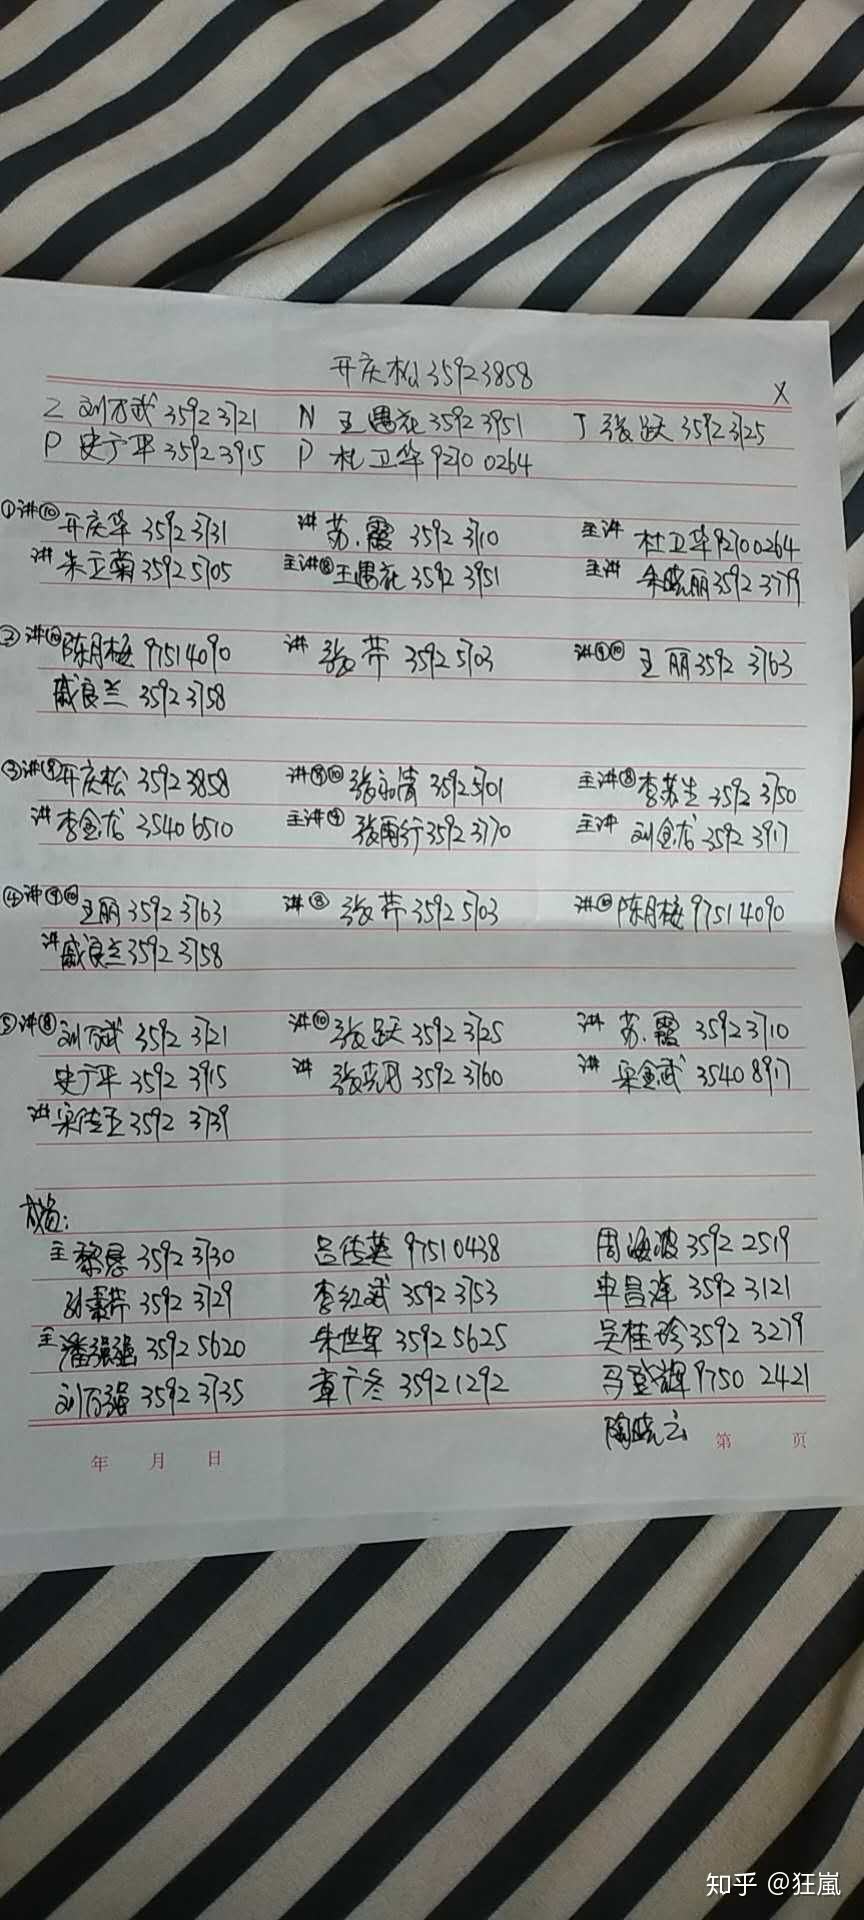 开庆松 3592 3858
X
Z 刘万武 3592 3721 N 王遇花 3592 3951 J 张跃 3592 3725
P 史广平 3592 3915 P 杜卫华 9270 0264
①讲⑩开庆华 3592 3731 讲 苏霞 3592 3710 主讲 杜卫华 9270 0264
讲 朱立菊 3592 5705 主讲⑧王遇花 3592 3951 主讲 朱晓丽 3592 3779
②讲⑩陈月梅 9751 4090 讲 张芹 3592 5703 讲⑨⑩ 王丽 3592 3763
戚良兰 3592 3758
③讲⑨开庆松 3592 3858 讲⑨⑩张永清 3592 5701 主讲⑧李苏生 3592 3750
讲 李金龙 3540 6510 主讲⑨ 张雨行 3592 3770 主讲 刘金龙 3592 3917
④讲⑨⑩王丽 3592 3763 讲⑧ 张芹 3592 5703 讲⑩陈月梅 9751 4090
讲戚良兰 3592 3758
⑤讲⑧刘万武 3592 3721 讲⑩张跃 3592 3725 讲 苏霞 3592 3710
史广平 3592 3915 讲 张克月 3592 3760 讲 宋金武 3540 8917
讲宋传玉 3592 3739
成员:
主 黎恳 3592 3730 吕传英 9751 0438 周海波 3592 2519
孙素芹 3592 3729 李红斌 3592 3753 申昌泽 3592 3121
主潘强强 3592 5620 朱世军 3592 5625 吴桂珍 3592 3279
刘万强 3592 3735 章广冬 3592 1292 马登辉 9750 2421
陶晓云 第 页
年 月 日
知乎 @狂嵐